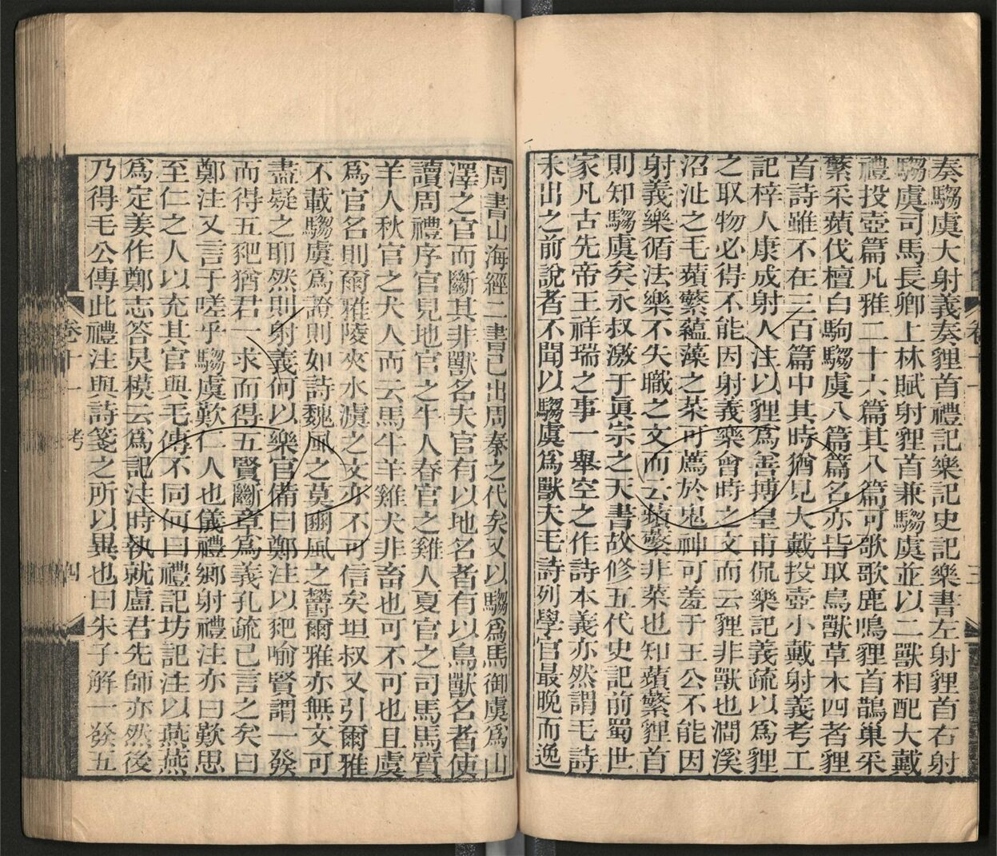 奏騶虞大射義奏貍首禮記樂記史記樂書左射貍首右射
騶虞司馬長卿上林賦射貍首兼騶虞並以二獸相配大戴
禮投壺篇凡雅二十六篇其八篇可歌歌鹿鳴貍首鵲巢采
蘩采蘋伐檀白駒騶虞八篇篇名亦皆取鳥獸草木四者貍
首詩雖不在三百篇中其時猶見大戴投壺小戴射義考工
記梓人康成射人注以貍爲善搏皇甫侃樂記義疏以爲貍
之取物必得不能因射義樂會時之文而云貍非獸也澗溪
沼沚之毛蘋蘩蘊藻之菜可薦於鬼神可羞于王公不能因
射義樂循法樂不失職之文而云蘋蘩非菜也知蘋蘩貍首
則知騶虞矣永叔激于眞宗之天書故修五代史記前蜀世
家凡古先帝王祥瑞之事一舉空之作詩本義亦然謂毛詩
未出之前說者不聞以騶虞爲獸夫毛詩列學官最晚而逸
卷十一
三
周書山海經二書已出周秦之代矣又以騶爲馬御虞爲山
澤之官而斷其非獸名夫官有以地名者有以鳥獸名者使
讀周禮序官見地官之牛人春官之雞人夏官之司馬馬質
羊人秋官之犬人而云馬牛羊雞犬非畜也可不可也且虞
爲官名則爾雅陵夾水澞之文亦不可信矣坦叔又引爾雅
不載騶虞爲證則如詩魏風之莫豳風之鬱爾雅亦無文可
盡疑之耶然則射義何以樂官備曰鄭注以豝喻賢謂一發
而得五豝猶君一求而得五賢斷章爲義孔疏已言之矣曰
鄭注又言于嗟乎騶虞歎仁人也儀禮鄉射禮注亦曰歎思
至仁之人以充其官與毛傳不同何曰禮記坊記注以燕燕
爲定姜作鄭志答炅模云爲記注時執就盧君先師亦然後
乃得毛公傳此禮注與詩箋之所以異也曰朱子解一發五
卷十一
考
四